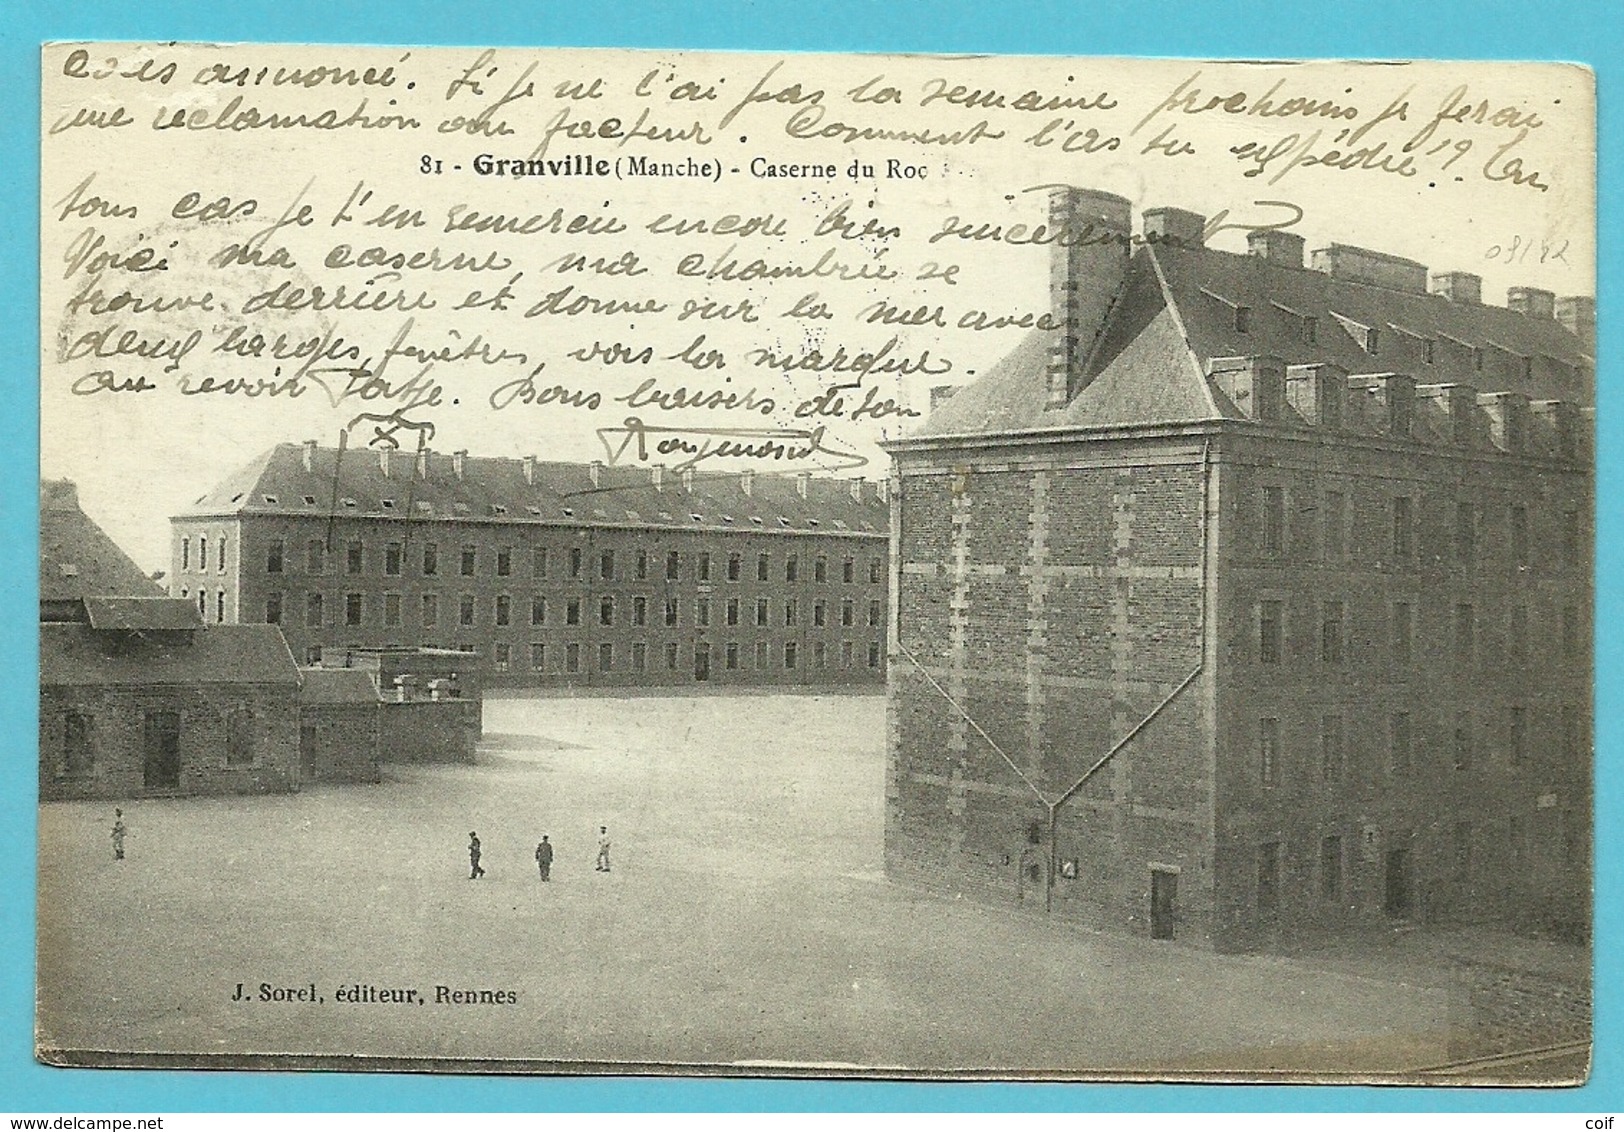 colis annoncé. Si je ne l'ai pas la semaine prochaine je ferai
une réclamation au facteur. Comment l'as tu expédié? En
81 - Granville (Manche) - Caserne du Roc
tous cas je t'en remercie encore bien sincèrement
Voici ma caserne, ma chambrée se
trouve derrière et donne sur la mer avec
deux larges fenêtres, vois la marque.
au revoir Bons baisers de ton
X
Raymond
09/42
J. Sorel, éditeur, Rennes
coif